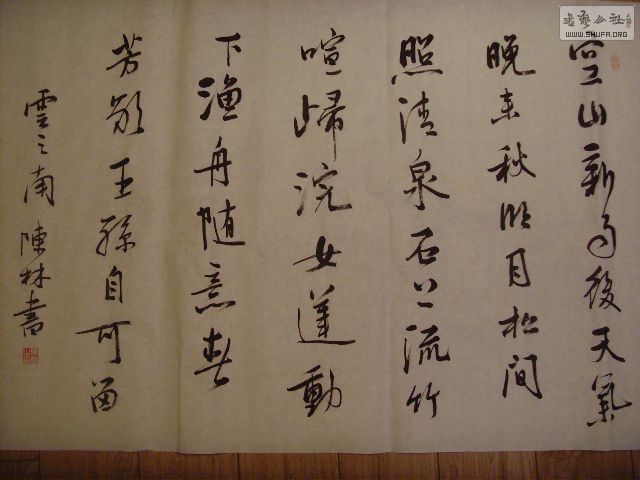 空山新雨後天氣
晚来秋明月松间
照清泉石上流竹
喧歸浣女蓮動
下渔舟随意春
芳歇王孫自可留
雲之南陳林書
書藝公社
WWW.SHUFA.ORG